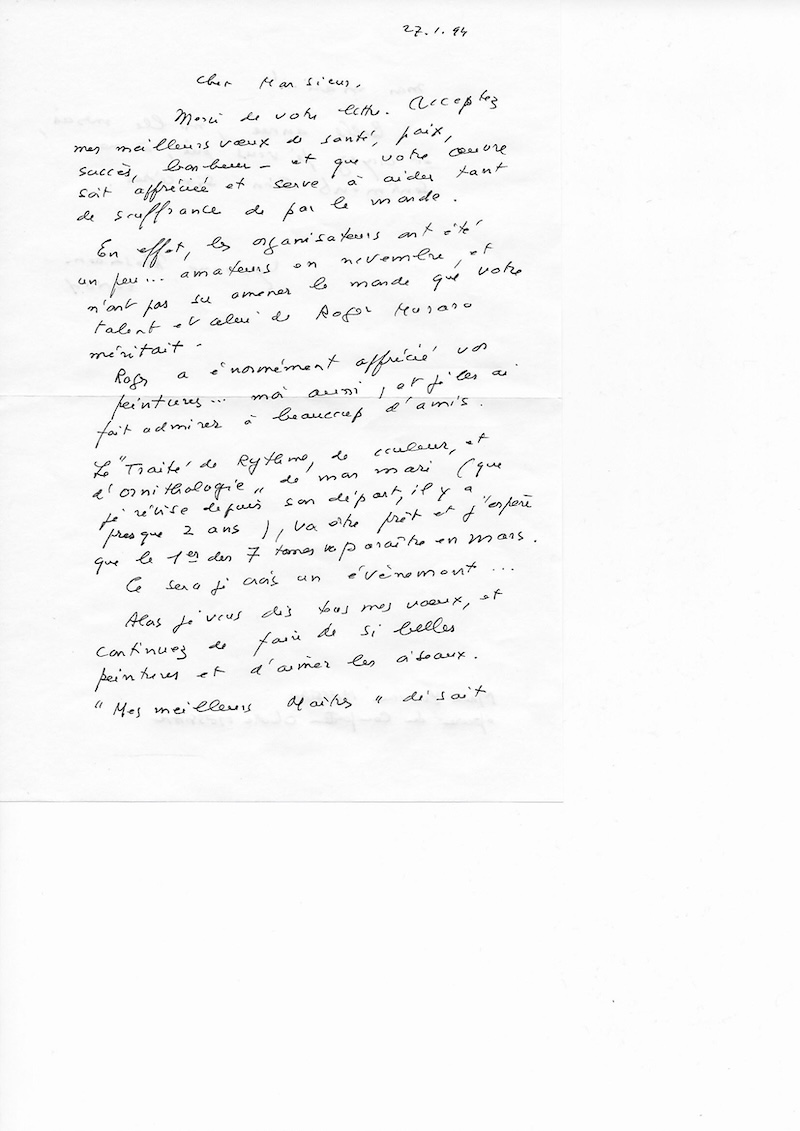 27.1.94
Cher Monsieur,
Merci de votre lettre. Acceptez
mes meilleurs vœux de santé, paix,
succès, bonheur - et que votre œuvre
soit appréciée et serve à aider tant
de souffrance de par le monde.
En effet, les organisateurs ont été
un peu... amateurs en novembre, et
n'ont pas su amener le monde que votre
talent et celui de Roger Muraro
méritait.
Roger a énormément apprécié vos
peintures... moi aussi, et je les ai
fait admirer à beaucoup d'amis.
Le "Traité de Rythme, de couleur, et
d'ornithologie" de mon mari (que
je révise depuis son départ, il y a
presque 2 ans), va être prêt et j'espère
que le 1er des 7 tomes va paraître en mars.
Ce sera je crois un évènement...
Alors je vous dis tous mes vœux, et
continuez de faire de si belles
peintures et d'aimer les oiseaux.
"Mes meilleurs Maîtres" disait